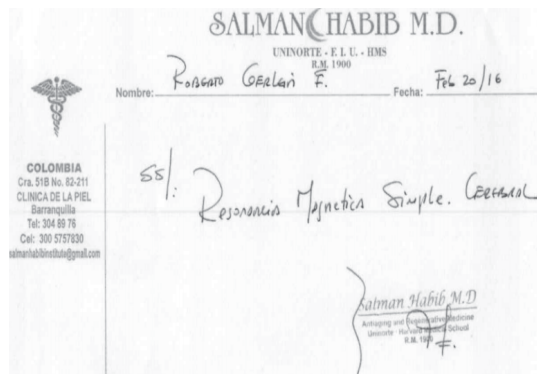 SALMAN HABIB M.D.
UNINORTE - F. I. U. - HMS
R.M. 1900
Nombre: Roberto Gerlein F. Fecha: Feb 20/16
COLOMBIA
Cra. 51B No. 82-211
CLINICA DE LA PIEL
Barranquilla
Tel: 304 89 76
Cel: 300 5757830
salmanhabibinstitute@gmail.com
SS/:
Resonancia Magnetica Simple. Cerebral
Salman Habib M.D
Antiaging and Regenerative Medicine
Uninorte - Harvard Medical School
R.M. 1900